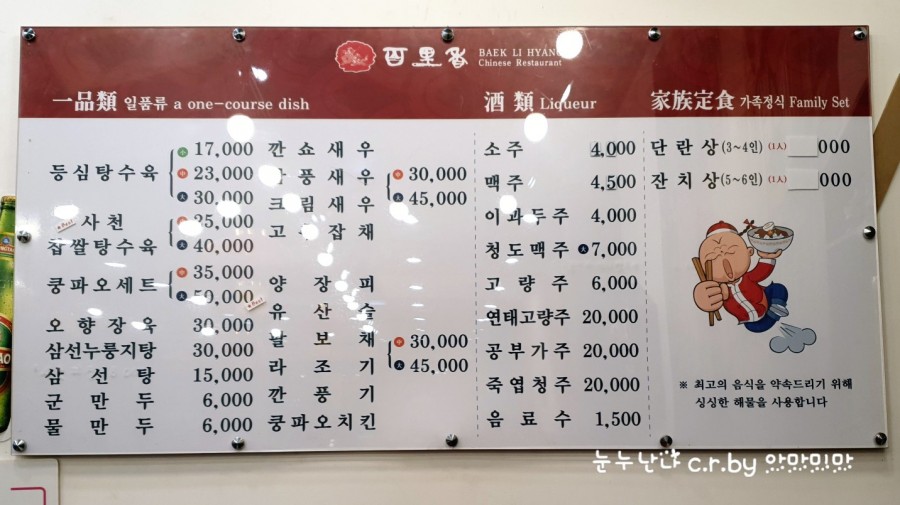 百里香 BAEK LI HYANG
Chinese Restaurant
一品類 일품류 a one-course dish
등심탕수육
小 17,000
中 23,000
大 30,000
Best 사천
찹쌀탕수육
中 25,000
大 40,000
쿵파오세트
中 35,000
大 50,000
오향장육 30,000
삼선누룽지탕 30,000
삼선탕 15,000
군만두 6,000
물만두 6,000
깐쇼새우
풍새우
크림새우
고 잡채
中 30,000
大 45,000
양장피
Best
유산슬
팔보채
라조기
깐풍기
쿵파오치킨
中 30,000
大 45,000
酒類 Liqueur
소주 4,000
맥주 4,500
이과두주 4,000
청도맥주 大 7,000
고량주 6,000
연태고량주 20,000
공부가주 20,000
죽엽청주 20,000
음료수 1,500
家族定食 가족정식 Family Set
단란상 (3~4인) (1人) 000
잔치상 (5~6인) (1人) 000
※ 최고의 음식을 약속드리기 위해
싱싱한 해물을 사용합니다
눈누난냐 c.r.by 얌먐미먐